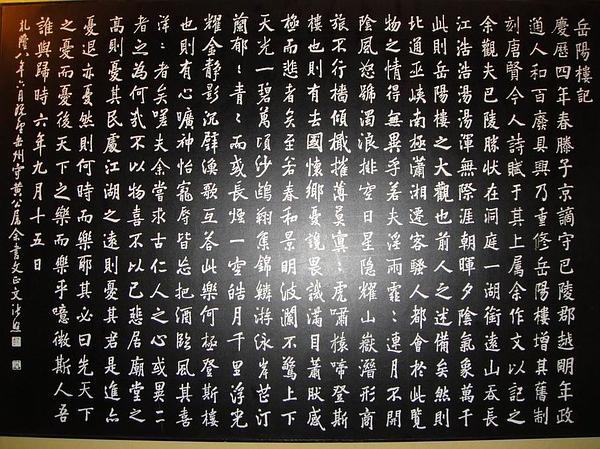 岳陽樓記
慶歷四年春滕子京謫守巴陵郡越明年政
通人和百廢具興乃重修岳陽樓增其舊制
刻唐賢今人詩賦于其上屬余作文以記之
余觀夫巴陵勝狀在洞庭一湖銜遠山吞長
江浩浩湯湯渾無際涯朝暉夕陰氣象萬千
此則岳陽樓之大觀也前人之述備矣然則
北通巫峽南極瀟湘遷客騷人都會於此覽
物之情得無異乎若夫淫雨霏々連月不開
陰風怒號濁浪排空日星隱耀山嶽潛形商
旅不行檣傾檝摧薄莫冥々虎嘯猿啼登斯
樓也則有去國懷鄉憂讒畏譏滿目蕭然感
極而悲者矣至若春和景明波瀾不驚上下
天光一碧萬頃沙鷗翔集錦鱗游泳岸芷汀
蘭郁々青々而或長煙一空皓月千里浮光
耀金靜影沉璧漁歌互答此樂何極登斯樓
也則有心曠神怡寵辱皆忘把酒臨風其喜
洋々者矣嗟夫余嘗求古仁人之心或異二
者之為何哉不以物喜不以己悲居廟堂之
高則憂其民處江湖之遠則憂其君是進亦
憂退亦憂然則何時而樂耶其必曰先天下
之憂而憂後天下之樂而樂乎噫微斯人吾
誰與歸時六年九月十五日
乾隆八年六月既望岳州守黃公屬余書文正文張照